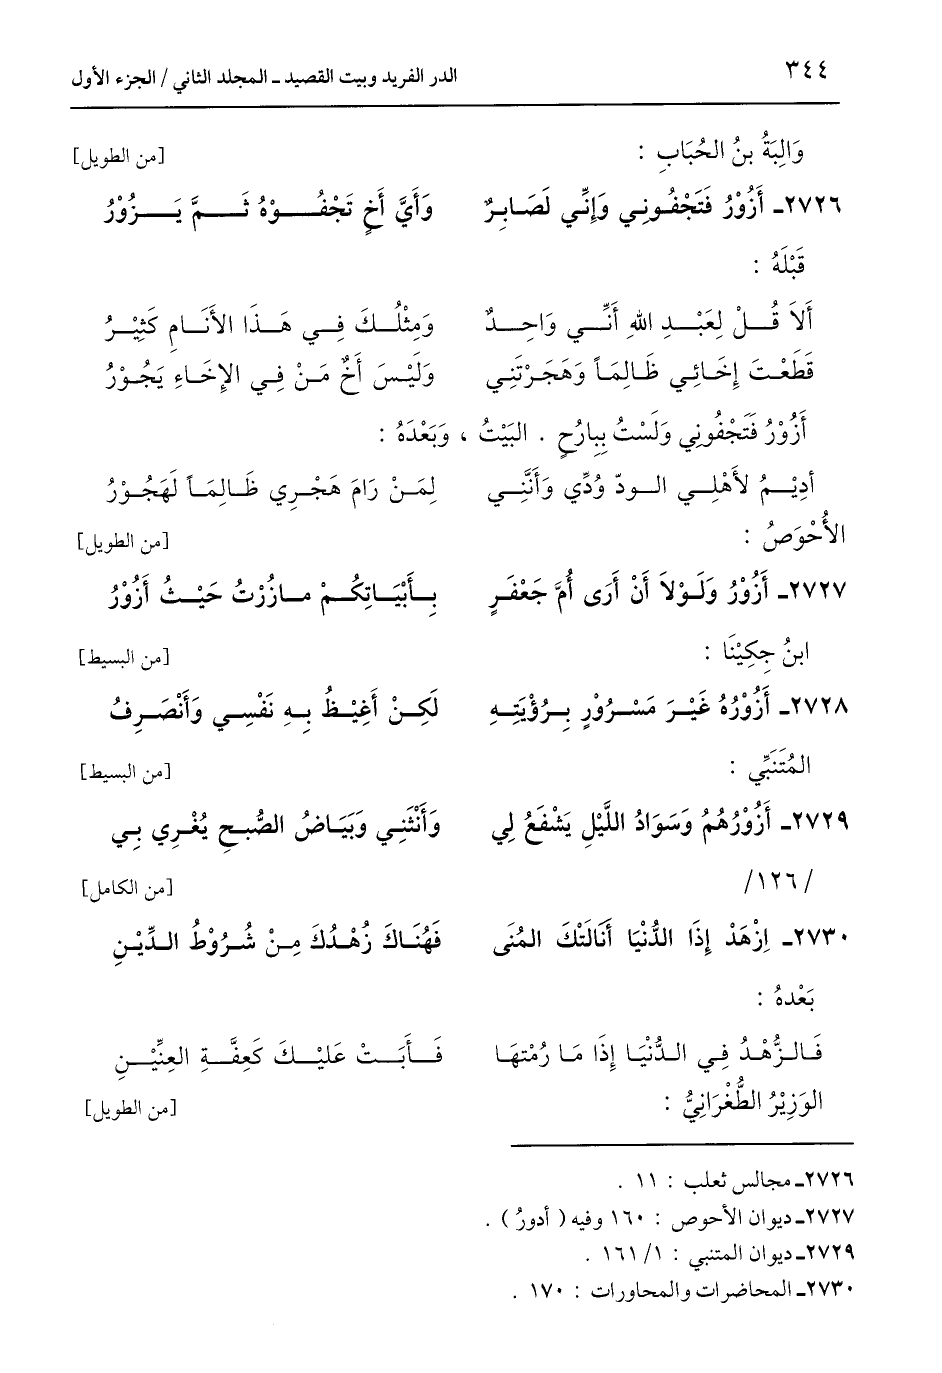 ٣٤٤ الدر الفريد وبيت القصيد ـ المجلد الثاني / الجزء الأول
وَالِبَةُ بنُ الحُبَابِ : [من الطويل]
٢٧٢٦ـ أَزُوْرُ فَتَجْفُونِي وَإِنِّي لَصَابِرٌ وَأَيَّ أَخٍ تَجْفُوْهُ ثَمَّ يَزُوْرُ
قَبْلَهُ :
أَلاَ قُلْ لِعَبْدِ اللهِ أَنِّي وَاحِدٌ وَمِثْلُكَ فِي هَذَا الأَنَامِ كَثِيْرُ
قَطَعْتَ إِخَائِي ظَالِمَاً وَهَجَرْتَنِي وَلَيْسَ أَخٌ مَنْ فِي الإِخَاءِ يَجُوْرُ
أَزُوْرُ فَتَجْفُوني وَلَسْتُ بِبارُحٍ . البَيْتُ ، وَبَعْدَهُ :
أدِيْمُ لأَهْلِي الودّ وُدِّي وَأَنَّنِي لِمَنْ رَامَ هَجْرِي ظَالِمَاً لَهَجُوْرُ
الأُحْوَصُ : [من الطويل]
٢٧٢٧ـ أَزُوْرُ وَلَوْلاَ أَنْ أَرَى أُمَّ جَعْفَرٍ بِأَبْيَاتِكُمْ مازُرْتُ حَيْثُ أَزُوْرُ
ابنُ حِكِيْنَا : [من البسيط]
٢٧٢٨ـ أَزُوْرُهُ غَيْرَ مَسْرُوْرٍ بِرُؤْيَتِهِ لَكِنْ أَغِيْظُ بِهِ نَفْسِي وَأَنْصَرِفُ
المُتَنَبِّي : [من البسيط]
٢٧٢٩ـ أَزُوْرُهُمُ وَسَوَادُ اللَّيْلِ يَشْفَعُ لِي وَأَنْثَنِي وَبَيَاضُ الصُّبحِ يُغْرِي بِي
/١٢٦/ [من الكامل]
٢٧٣٠ـ اِزْهَدْ إِذَا الدُّنْيَا أَنَالَتْكَ المُنَى فَهُنَاكَ زُهْدُكَ مِنْ شُرُوْطُ الدِّيْنِ
بَعْدهُ :
فَالزُّهْدُ فِي الدُّنْيَا إِذَا مَا رُمْتهَا فَأَبَتْ عَلَيْكَ كَعِفَّةِ العِنِّيْنِ
الوَزِيْرُ الطُّغْرَانِيُّ : [من الطويل]
٢٧٢٦ـ مجالس ثعلب : ١١ .
٢٧٢٧ـ ديوان الأحوص : ١٦٠ وفيه ( أدورُ ) .
٢٧٢٩ـ ديوان المتنبي : ١/ ١٦١ .
٢٧٣٠ـ المحاضرات والمحاورات : ١٧٠ .